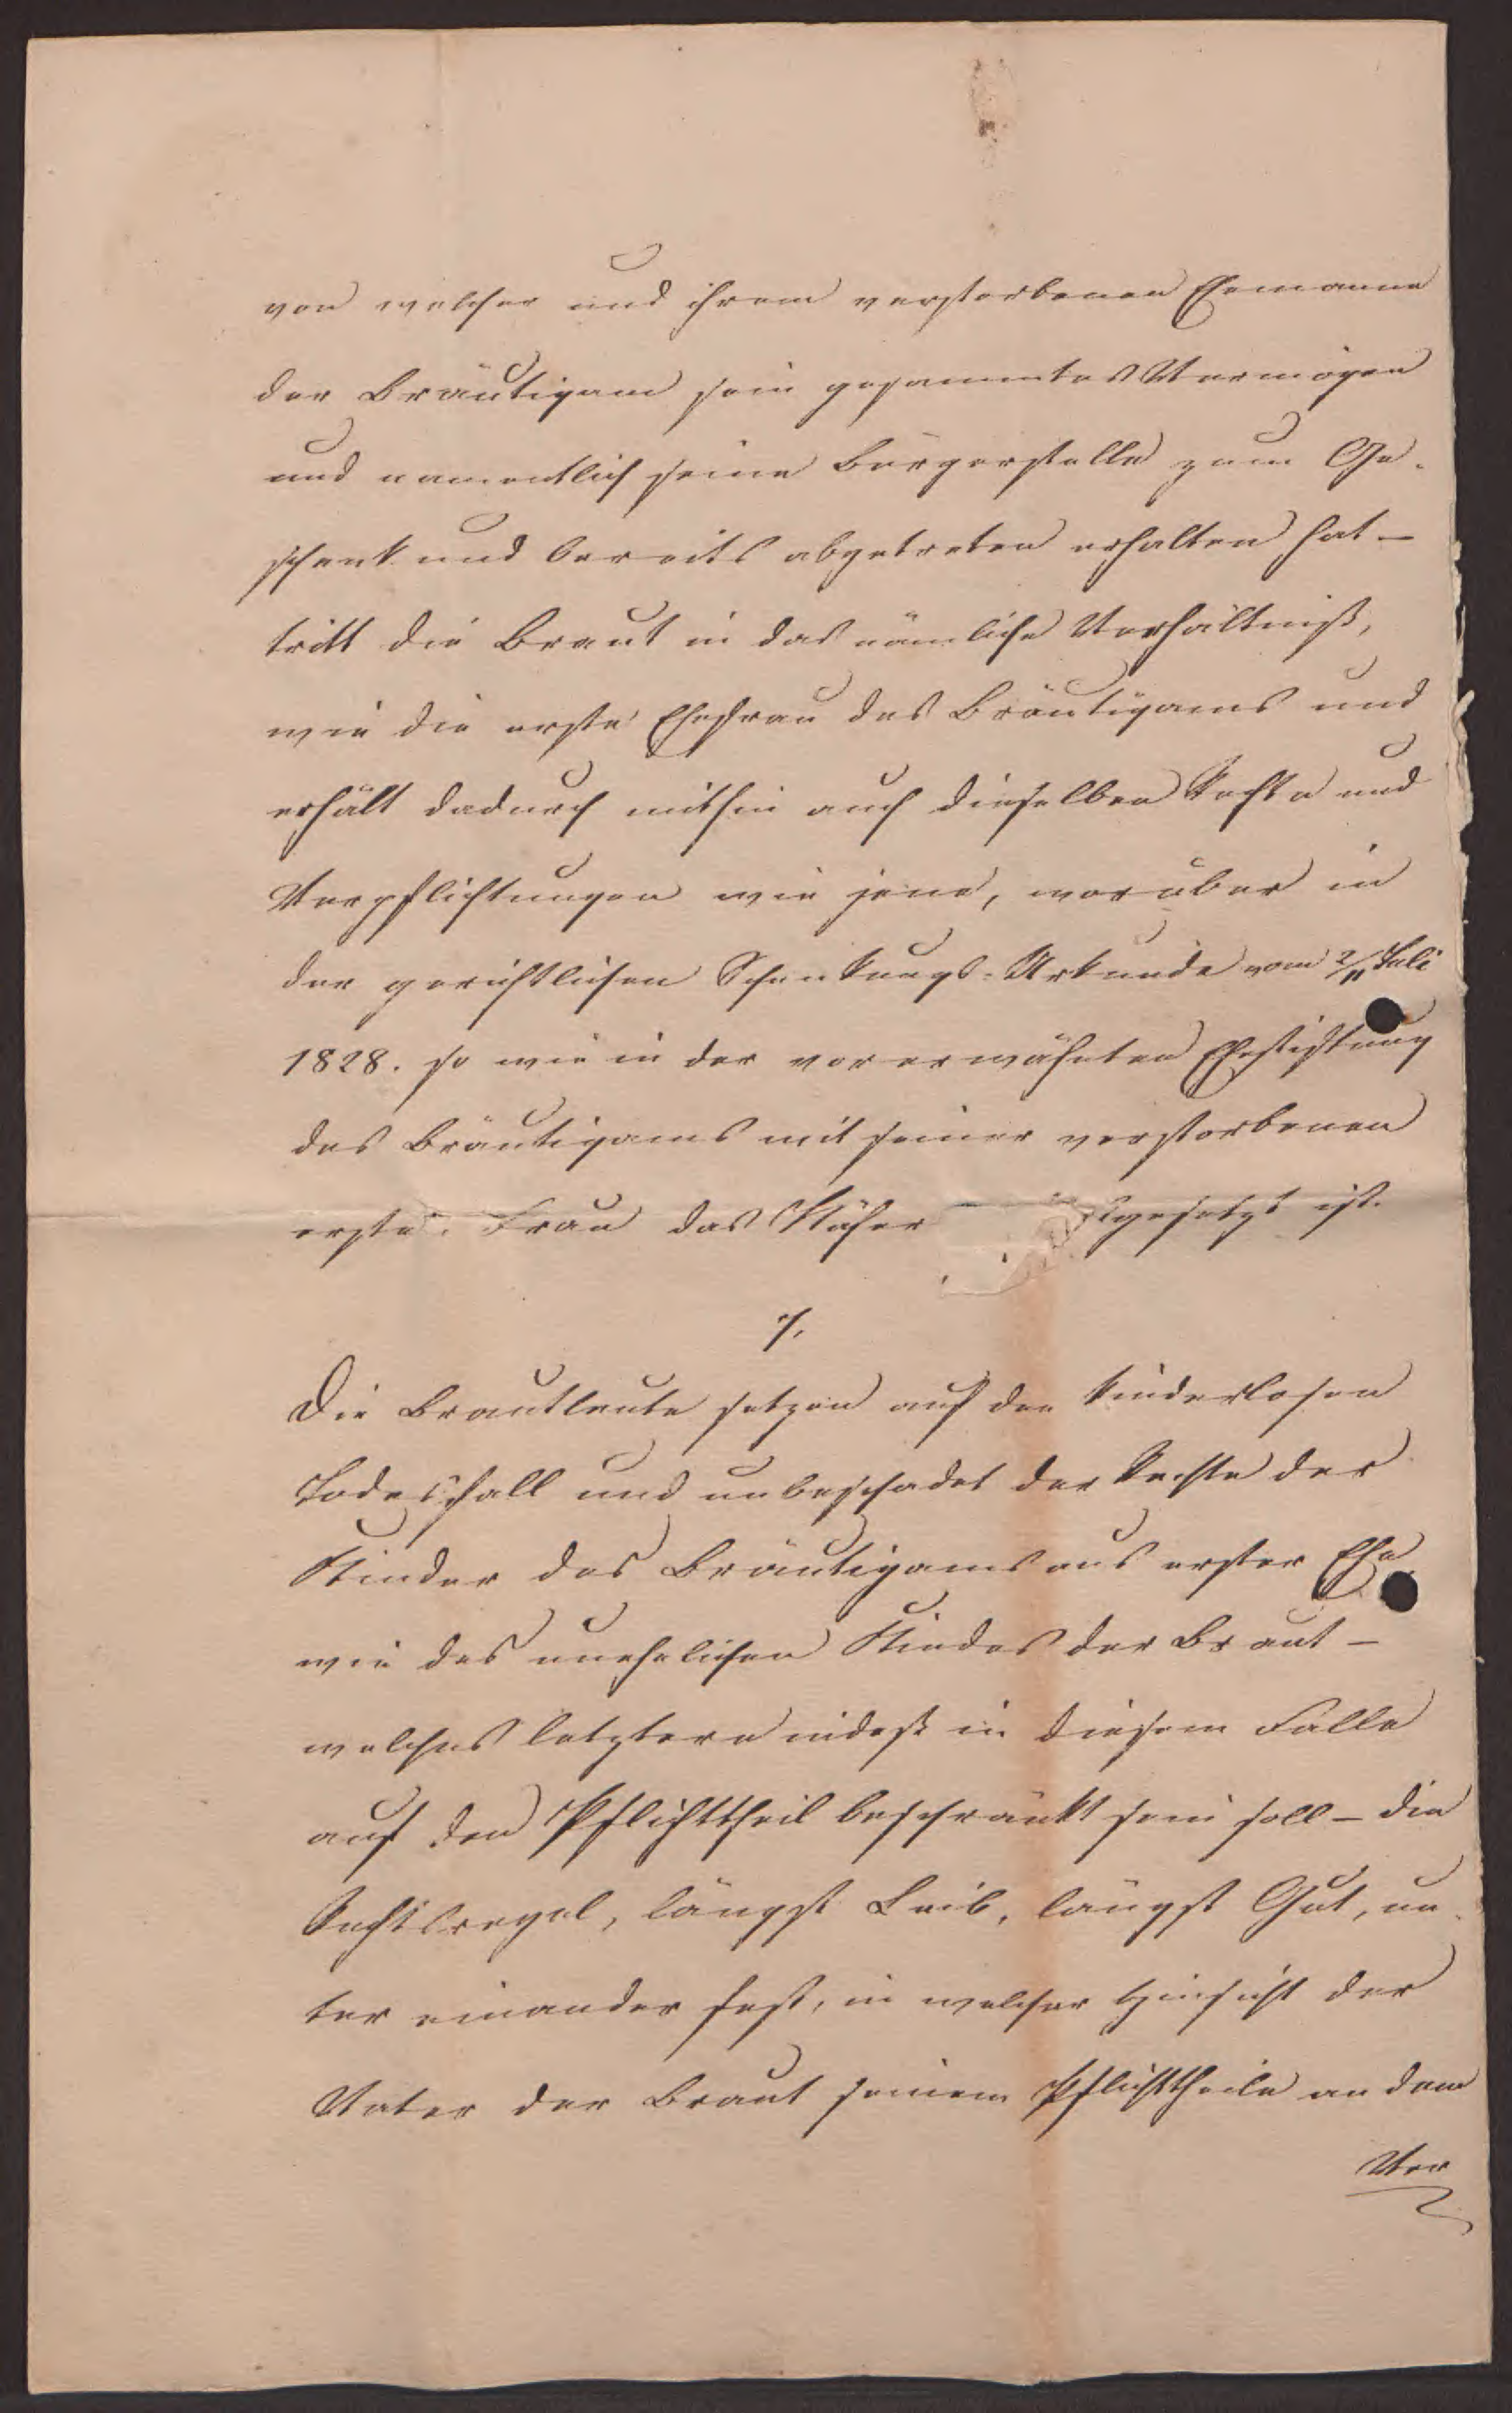 von welcher und ihrem verstorbenen Ehemanne
der Bräutigam sein gesammtes Vermögen
und namentlich seine Bürgerstelle zum Ge-
schenk und bereits abgetreten erhalten hat –
tritt die Braut in das nämliche Verhältniß,
wie die erste Ehefrau des Bräutigams und
erhält dadurch mithin auch dieselben Rechte und
Verpflichtungen wie jene, worüber in
der gerichtlichen Schenkungs-Urkunde vom 2/11 Juli
1828. so wie in der vorerwähnten Ehestiftung
des Bräutigams mit seiner verstorbenen
erste. Frau das Nähere gesetzt ist.
7.
Die Brautleute setzen auf den kinderlosen
Todesfall und unbeschadet der Rechte der
Kinder des Bräutigams aus erster Ehe
wie des unehelichen Kindes der Braut –
welches letztere indeß in diesem Falle
auf den Pflichttheil beschränkt sein soll – die
Rechtsregel, längst Leib, längst Gut, un-
ter einander fest, in welcher Hinsicht der
Vater der Braut seinem Pflichttheile an dem
Ver